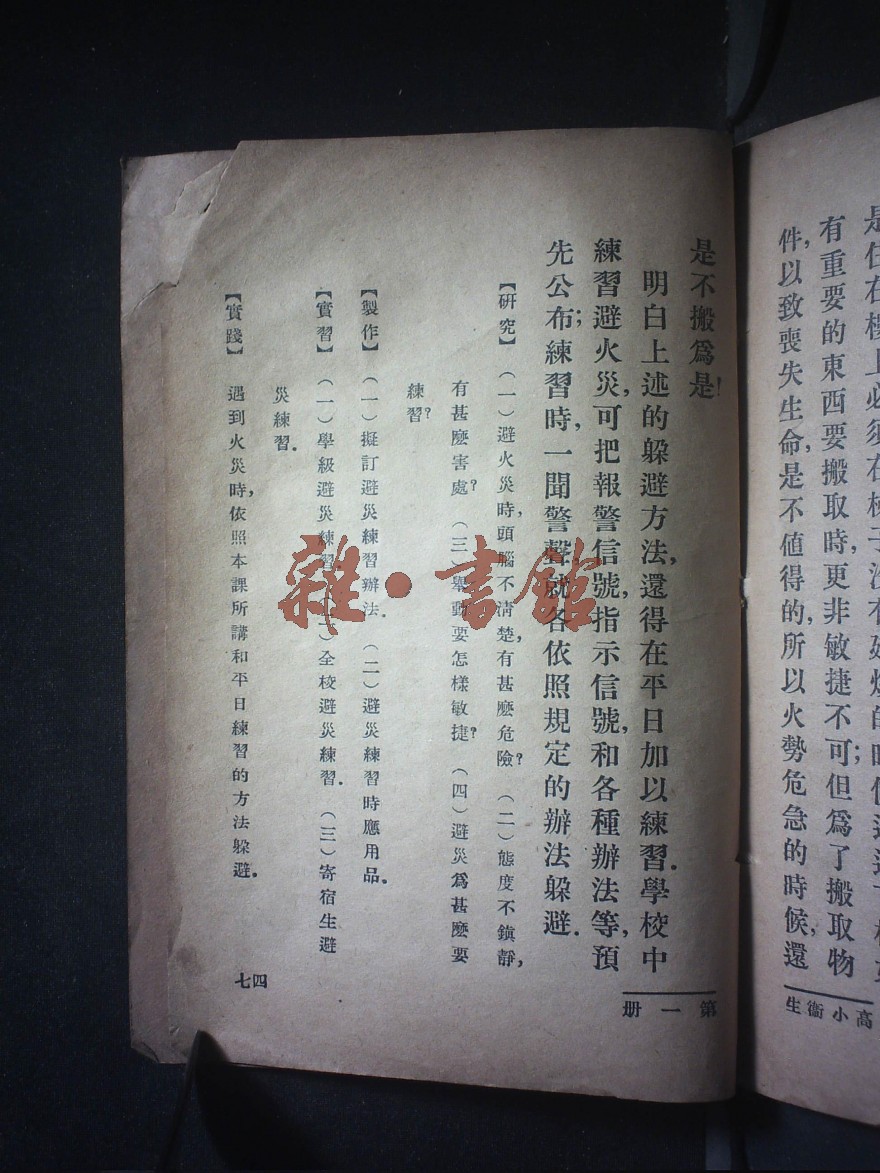 有重要的東西要搬取時,更非敏捷不可;但爲了搬取物
件,以致喪失生命,是不値得的,所以火勢危急的時候,還
高小衞生
是不搬爲是!
明白上述的躲避方法,還得在平日加以練習.學校中
練習避火災,可把報警信號,指示信號,和各種辦法等,預
先公布;練習時,一聞警聲,就各依照規定的辦法躲避.
【硏究】 (一)避火災時,頭腦不淸楚,有甚麽危險? (二)態度不鎭靜,
有甚麽害處? (三)舉動要怎樣敏捷? (四)避災爲甚麽要
練習?
【製作】 (一)擬訂避災練習辦法. (二)避災練習時應用品.
【實習】 (一)學級避災練習. (二)全校避災練習. (三)寄宿生避
災練習.
【實踐】 遇到火災時,依照本課所講和平日練習的方法躲避.
第一册
四七
雜·書館